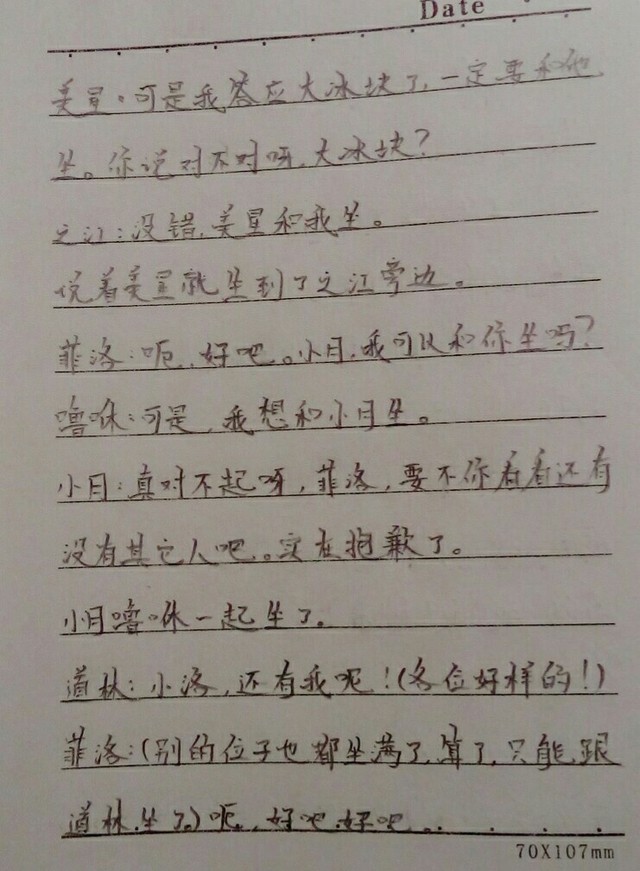 Date
美星：可是我答应大冰块了，一定要和他
坐。你说对不对呀，大冰块？
之江：没错，美星和我坐。
说着美星就坐到了之江旁边。
菲洛：呃，好吧。小月，我可以和你坐吗？
噜咻：可是，我想和小月坐。
小月：真对不起呀，菲洛，要不你看看还有
没有其它人吧。实在抱歉了。
小月噜咻一起坐了。
道林：小洛，还有我呢！(各位好样的！)
菲洛：(别的位子也都坐满了，算了，只能跟
道林坐了)呃，好吧好吧...
70X107mm